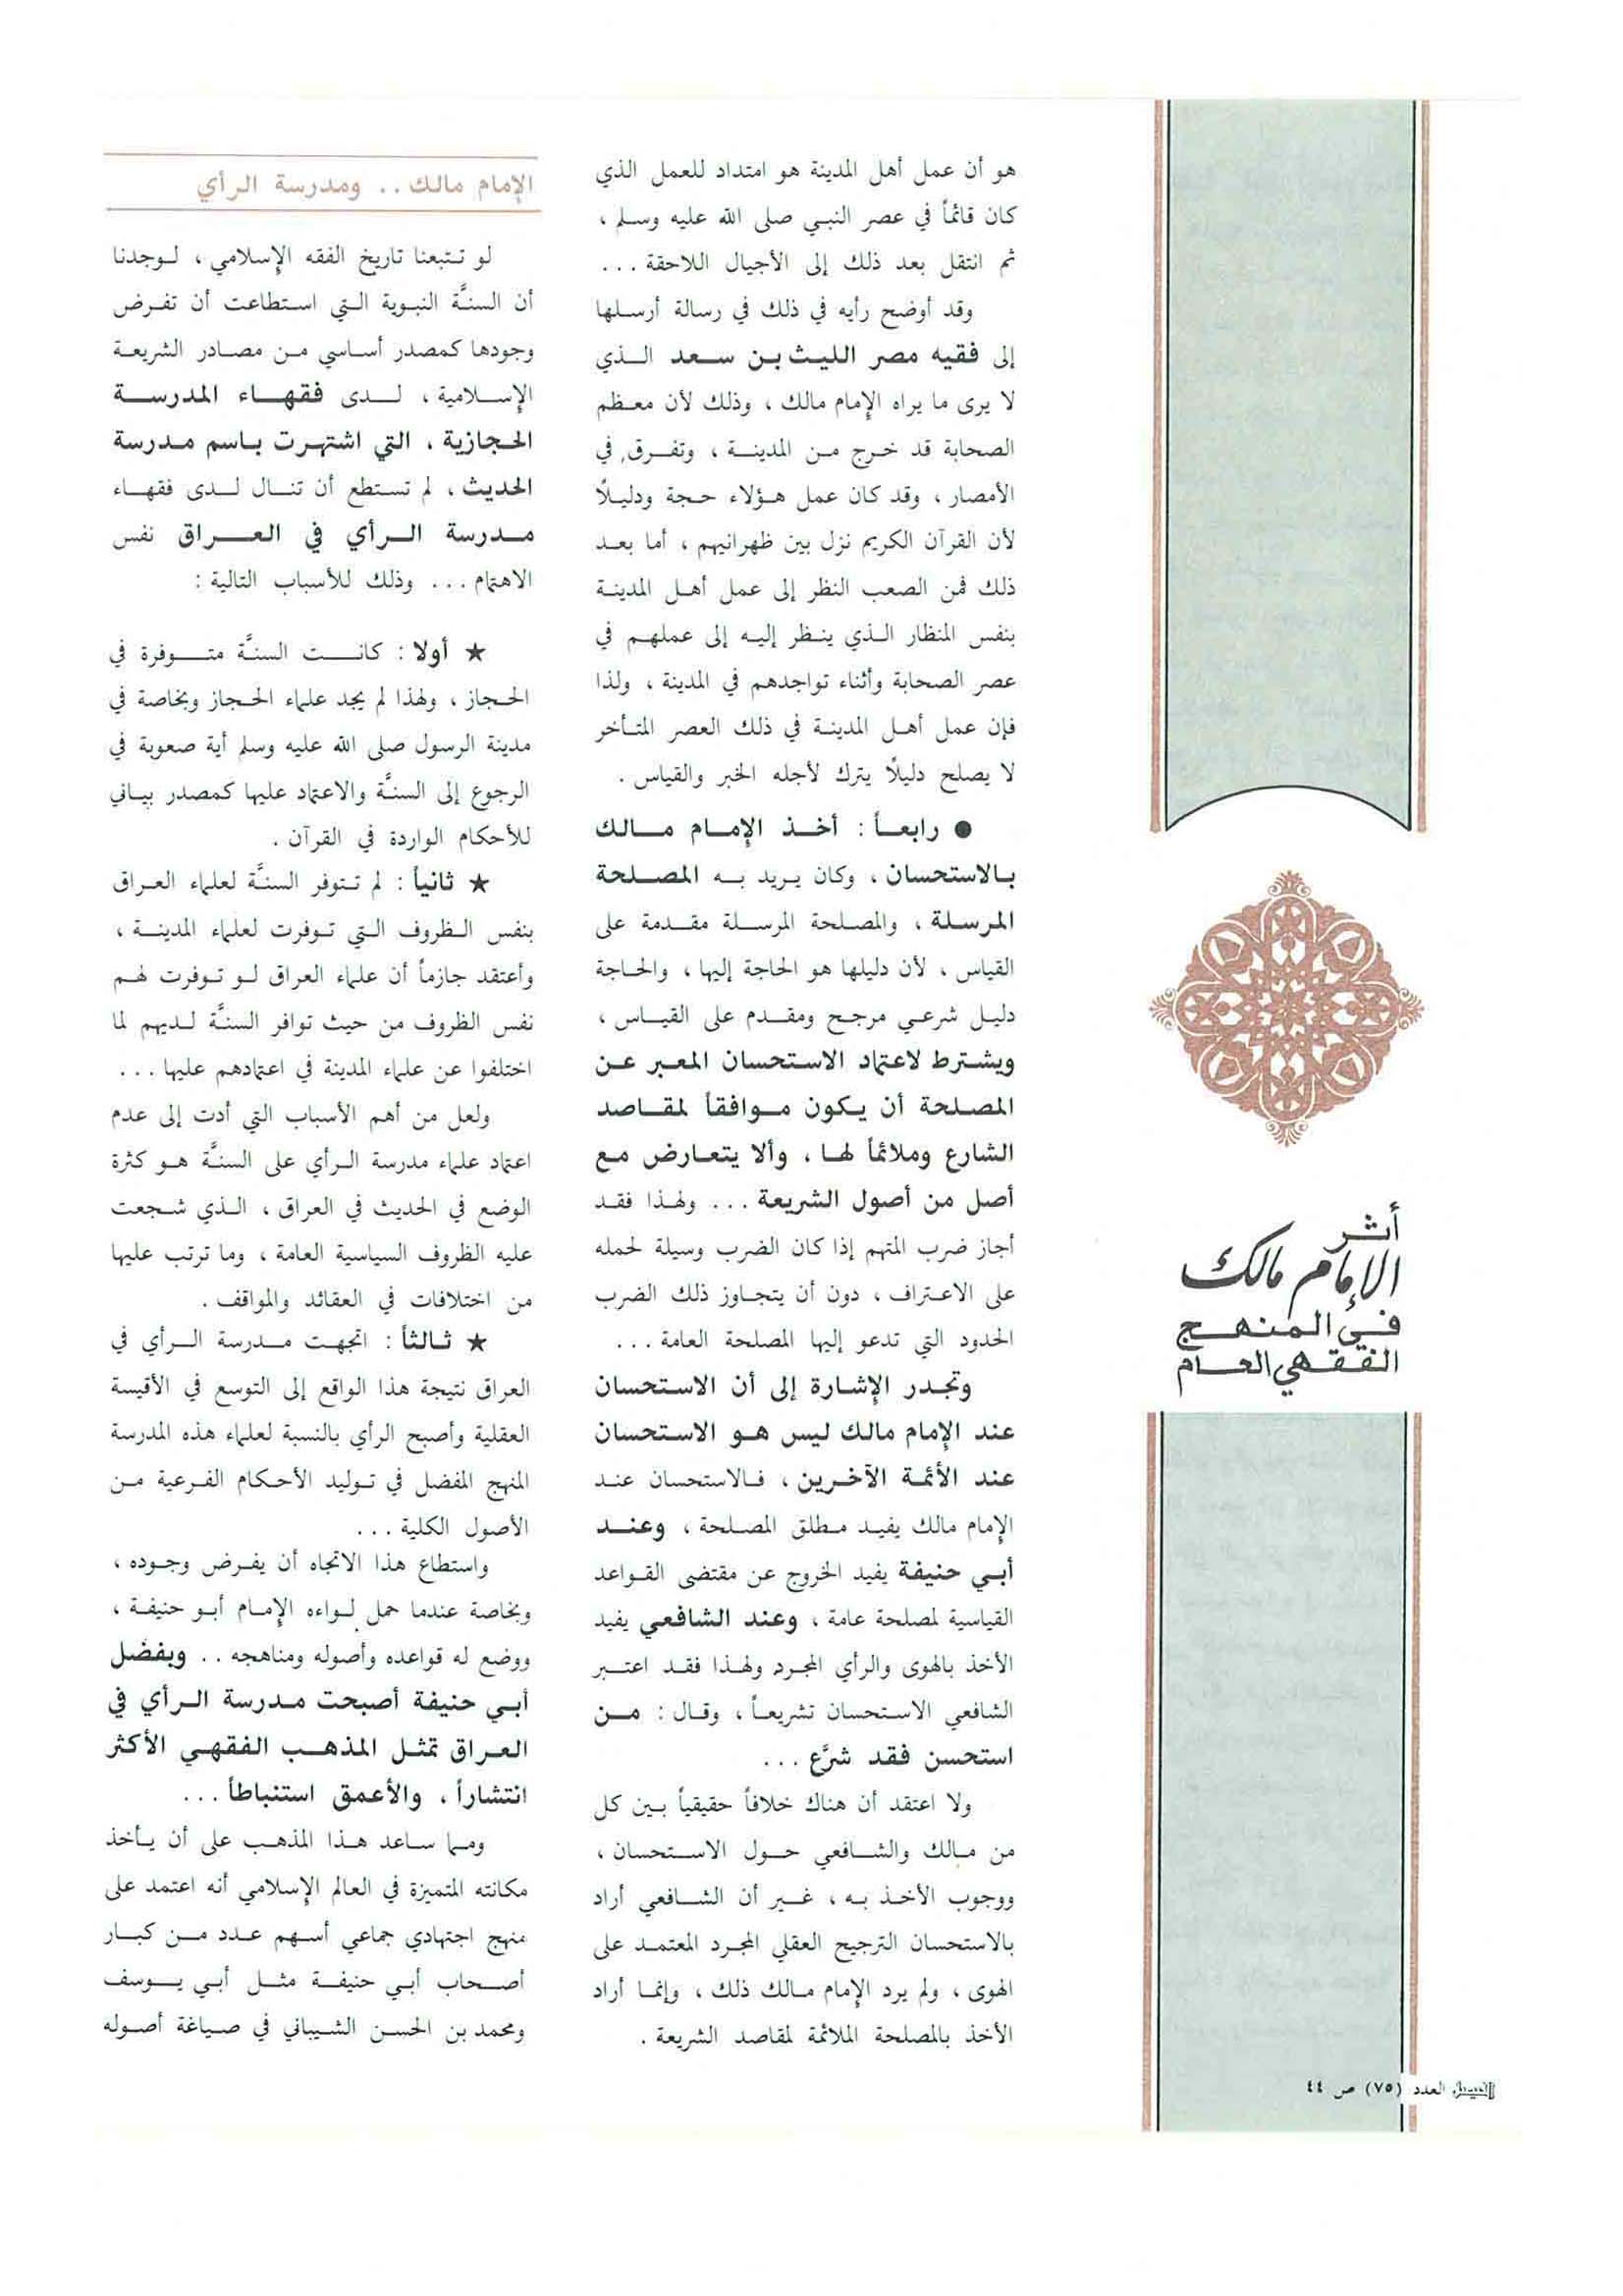 أثر
الإمام مالك
في المنهج
الفقهي العام
هو أن عمل أهل المدينة هو امتداد للعمل الذي
كان قائماً في عصر النبي صلى الله عليه وسلم ،
ثم انتقل بعد ذلك إلى الأجيال اللاحقة ...
وقد أوضح رأيه في ذلك في رسالة أرسلها
إلى فقيه مصر الليث بن سعد الذي
لا يرى ما يراه الإمام مالك ، وذلك لأن معظم
الصحابة قد خرج من المدينة ، وتفرق في
الأمصار ، وقد كان عمل هؤلاء حجة ودليلاً
لأن القرآن الكريم نزل بين ظهرانيهم ، أما بعد
ذلك فمن الصعب النظر إلى عمل أهل المدينة
بنفس المنظار الذي ينظر إليه إلى عملهم في
عصر الصحابة وأثناء تواجدهم في المدينة ، ولذا
فإن عمل أهل المدينة في ذلك العصر المتأخر
لا يصلح دليلاً يترك لأجله الخبر والقياس .
● رابعاً : أخذ الإمام مالك
بالاستحسان ، وكان يريد به المصلحة
المرسلة ، والمصلحة المرسلة مقدمة على
القياس ، لأن دليلها هو الحاجة إليها ، والحاجة
دليل شرعي مرجح ومقدم على القياس ،
ويشترط لاعتماد الاستحسان المعبر عن
المصلحة أن يكون موافقاً لمقاصد
الشارع وملائماً لها ، وألا يتعارض مع
أصل من أصول الشريعة ... ولهذا فقد
أجاز ضرب المتهم إذا كان الضرب وسيلة لحمله
على الاعتراف ، دون أن يتجاوز ذلك الضرب
الحدود التي تدعو إليها المصلحة العامة ...
وتجدر الإشارة إلى أن الاستحسان
عند الإمام مالك ليس هو الاستحسان
عند الأئمة الآخرين ، فالاستحسان عند
الإمام مالك يفيد مطلق المصلحة ، وعند
أبي حنيفة يفيد الخروج عن مقتضى القواعد
القياسية لمصلحة عامة ، وعند الشافعي يفيد
الأخذ بالهوى والرأي المجرد ولهذا فقد اعتبر
الشافعي الاستحسان تشريعاً ، وقال : من
استحسن فقد شرَّع ...
ولا اعتقد أن هناك خلافاً حقيقياً بين كل
من مالك والشافعي حول الاستحسان ،
ووجوب الأخذ به ، غير أن الشافعي أراد
بالاستحسان الترجيح العقلي المجرد المعتمد على
الهوى ، ولم يرد الإمام مالك ذلك ، وإنما أراد
الأخذ بالمصلحة الملائمة لمقاصد الشريعة .
الإمام مالك .. ومدرسة الرأي
لو تتبعنا تاريخ الفقه الإسلامي ، لوجدنا
أن السنَّة النبوية التي استطاعت أن تفرض
وجودها كمصدر أساسي من مصادر الشريعة
الإسلامية ، لدى فقهاء المدرسة
الحجازية ، التي اشتهرت باسم مدرسة
الحديث ، لم تستطع أن تنال لدى فقهاء
مدرسة الرأي في العراق نفس
الاهتمام ... وذلك للأسباب التالية :
★ أولا : كانت السنَّة متوفرة في
الحجاز ، ولهذا لم يجد علماء الحجاز وبخاصة في
مدينة الرسول صلى الله عليه وسلم أية صعوبة في
الرجوع إلى السنَّة والاعتماد عليها كمصدر بياني
للأحكام الواردة في القرآن .
★ ثانياً : لم تتوفر السنَّة لعلماء العراق
بنفس الظروف التي توفرت لعلماء المدينة ،
وأعتقد جازماً أن علماء العراق لو توفرت لهم
نفس الظروف من حيث توافر السنَّة لديهم لما
اختلفوا عن علماء المدينة في اعتمادهم عليها ...
ولعل من أهم الأسباب التي أدت إلى عدم
اعتماد علماء مدرسة الرأي على السنَّة هو كثرة
الوضع في الحديث في العراق ، الذي شجعت
عليه الظروف السياسية العامة ، وما ترتب عليها
من اختلافات في العقائد والمواقف .
★ ثالثاً : اتجهت مدرسة الرأي في
العراق نتيجة هذا الواقع إلى التوسع في الأقيسة
العقلية وأصبح الرأي بالنسبة لعلماء هذه المدرسة
المنهج المفضل في توليد الأحكام الفرعية من
الأصول الكلية ...
واستطاع هذا الاتجاه أن يفرض وجوده ،
وبخاصة عندما حمل لواءه الإمام أبو حنيفة ،
ووضع له قواعده وأصوله ومناهجه .. وبفضل
أبي حنيفة أصبحت مدرسة الرأي في
العراق تمثل المذهب الفقهي الأكثر
انتشاراً ، والأعمق استنباطاً ...
ومما ساعد هذا المذهب على أن يأخذ
مكانته المتميزة في العالم الإسلامي أنه اعتمد على
منهج اجتهادي جماعي أسهم عدد من كبار
أصحاب أبي حنيفة مثل أبي يوسف
ومحمد بن الحسن الشيباني في صياغة أصوله
الفيصل العدد (٧٥) ص ٤٤